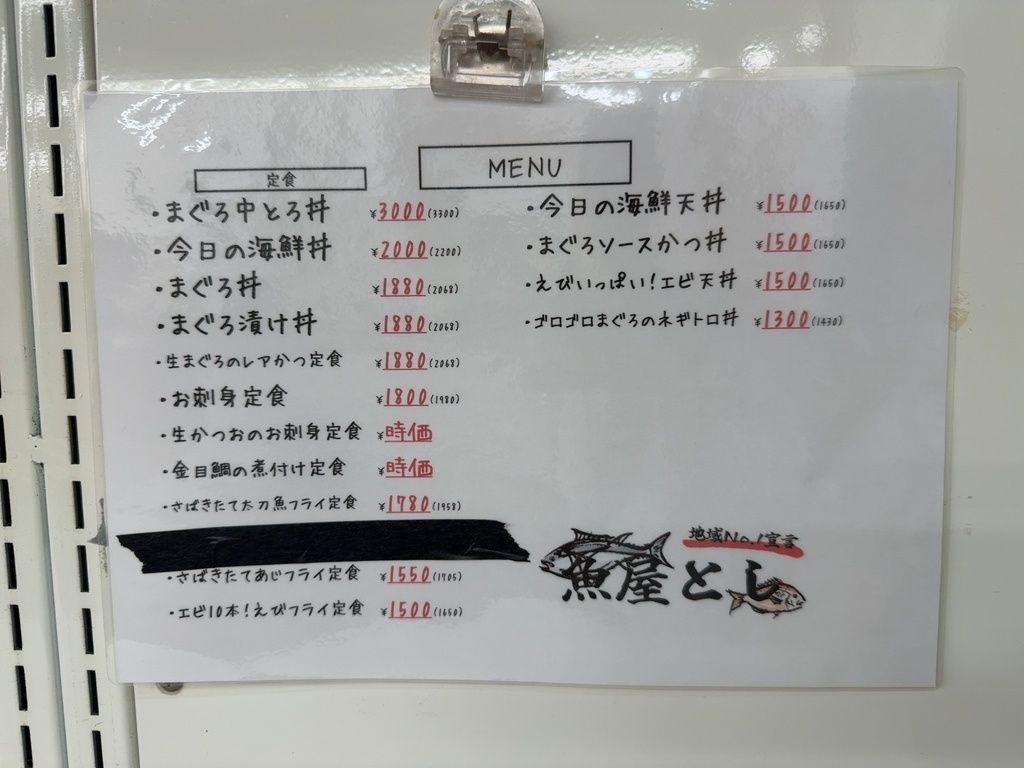 MENU
定食
・まぐろ中とろ丼 ¥3000(3300)
・今日の海鮮丼 ¥2000(2200)
・まぐろ丼 ¥1880(2068)
・まぐろ漬け丼 ¥1880(2068)
・生まぐろのレアかつ定食 ¥1880(2068)
・お刺身定食 ¥1800(1980)
・生かつおのお刺身定食 ¥時価
・金目鯛の煮付け定食 ¥時価
・さばきたて太刀魚フライ定食 ¥1780(1958)
・さばきたてあじフライ定食 ¥1550(1705)
・エビ10本!えびフライ定食 ¥1500(1650)
・今日の海鮮天丼 ¥1500(1650)
・まぐろソースかつ丼 ¥1500(1650)
・えびいっぱい!エビ天丼 ¥1500(1650)
・ゴロゴロまぐろのネギトロ丼 ¥1300(1430)
地域No.1宣言
魚屋とし